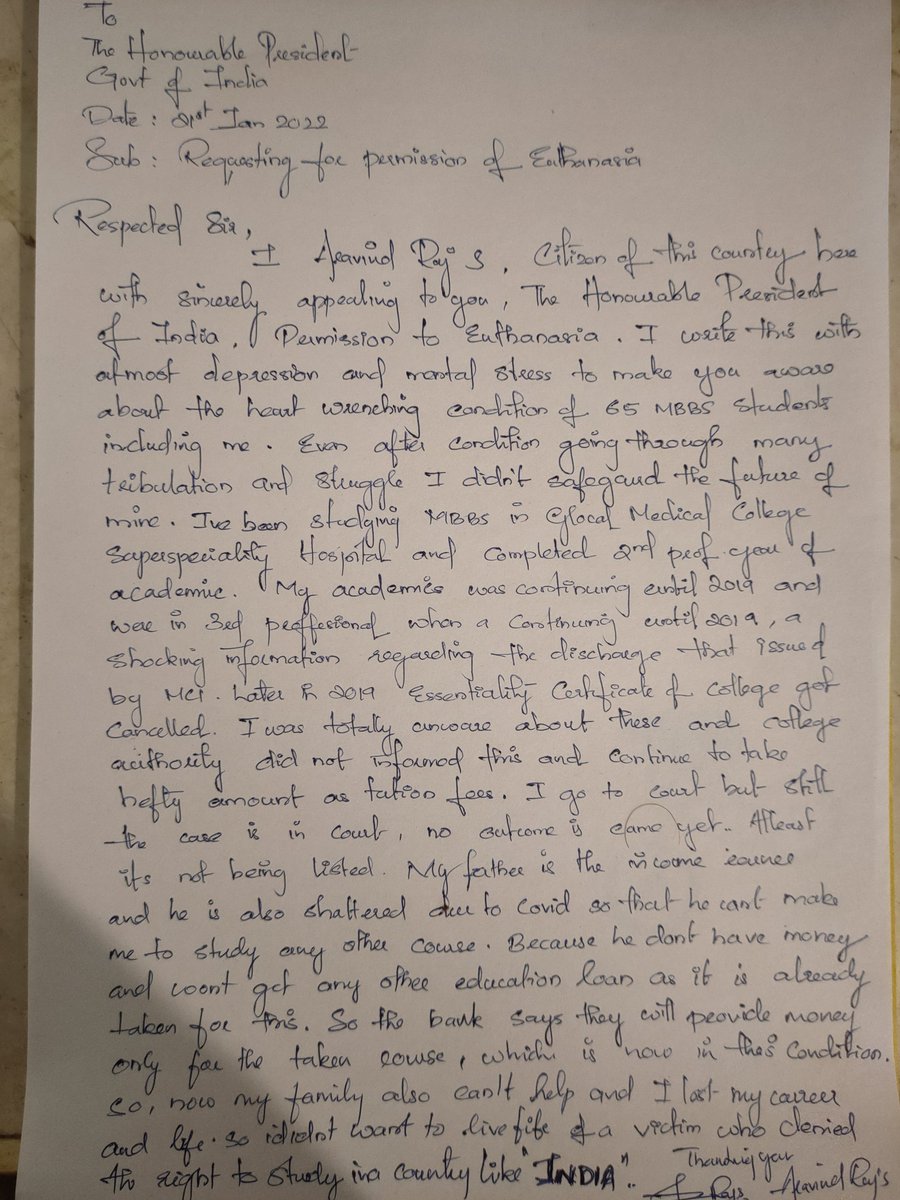 To
The Honourable President
Govt of India
Date : 21st Jan 2022
Sub : Requesting for permission of Euthanasia
Respected Sir,
I Aravind Raj S, Citizen of this country here
with sincerely appealing to you, The Honourable President
of India, Permission to Euthanasia. I write this with
atmost depression and mental stress to make you aware
about the heart wrenching condition of 65 MBBS Students
including me. Even after condition going through many
tribulation and struggle I didn't safegaurd the future of
mine. I've been studying MBBS in Glocal Medical College
Superspeciality Hospital and completed 2nd prof. year of
academic. My academics was continuing until 2019 and
were in 3rd proffesional when a continuing until 2019, a
shocking information regarding the discharge that issued
by MCI. Later in 2019 Essentiality Certificate of college got
Cancelled. I was totally unware about these and college
authority did not informed this and continue to take
hefty amount as tution fees. I go to court but still
the case is in court, no outcome is came yet.. Atleast
its not being listed. My father is the income
and he is also shattered due to Covid so that he cant make
me to study any other course. Because he dont have money
and woont get any other education loan as it is already
taken for this. So the bank says they will provide money
only for the taken course, which is now in this condition.
so, now my family also can't help and I lost my career
and life. so want to live life of a victim who denied
the right to study in a country like "INDIA"..
Thanking you
Aravind Raj S